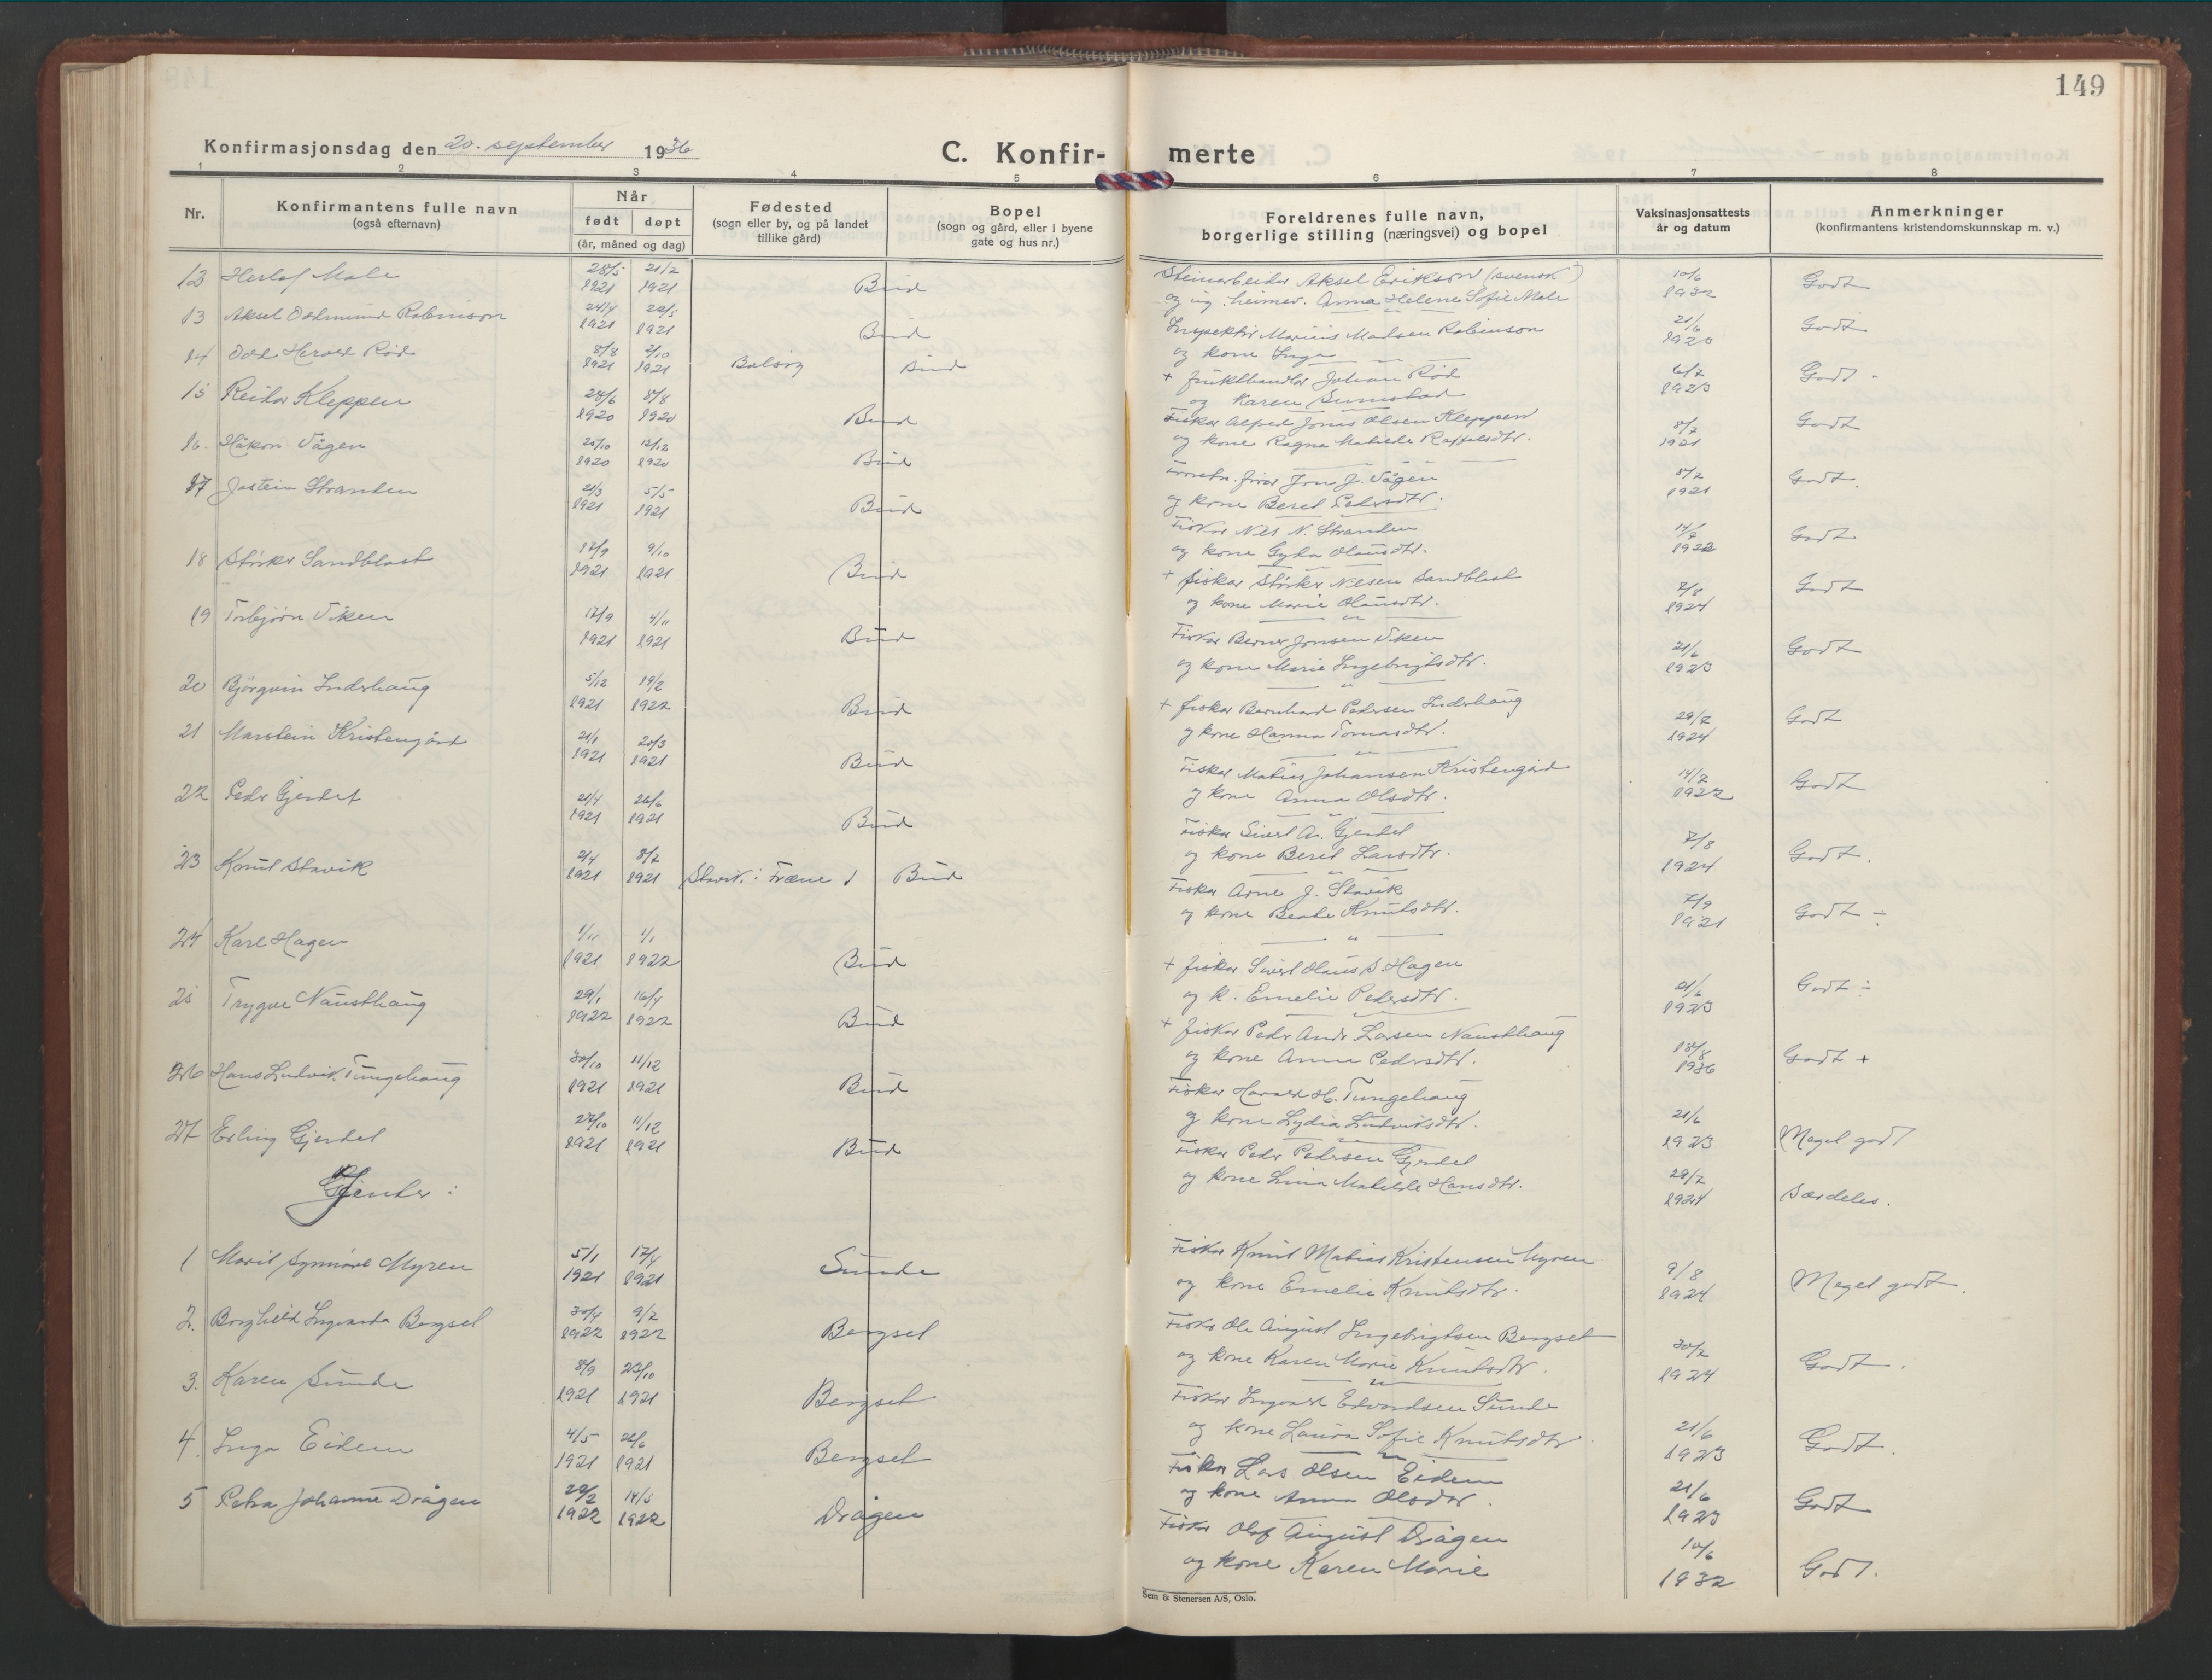 149
Konfirmasjonsdag den 20. september 1936
C. Konfir- merte
1 2 3 4 5 6 7 8
Nr.
Konfirmantens fulle navn
(også efternavn)
Når
født døpt
(år, måned og dag)
Fødested
(sogn eller by, og på landet
tillike gård)
Bopel
(sogn og gård, eller i byene
gate og hus nr.)
Foreldrenes fulle navn,
borgerlige stilling (næringsvei) og bopel
Vaksinasjonsattests
år og datum
Anmerkninger
(konfirmantens kristendomskunnskap m. v.)
Male 1921 21/7 1921 Bud Steinarbeider Aksel Erikson (svensk) 10/6 1932 Godt
og ug. heimev. Anna Helene Sofie Male
13 Aksel Oddmund Robinson 24/4 1921 22/5 1921 Bud Inspektør Marius Madsen Robinson 21/6 1920 Godt
og kone Inga
14 Odd Herold Rød 8/8 1921 2/10 1921 Bud + Johan Rød 6/7 1923 Godt
og Karen Sunnstad
15 Reidar Kleppen 28/6 1920 8/8 1920 Bud Fisker Alfred Jonas Olsen Kleppen 8/7 1921 Godt
og kone Ragna Matilde
16. Håkon Vågen 1920 12/12 1920 Bud Jon J. Vågen 8/7 1921 Godt
og kone Beret Pedersdtr.
17 Jostein Stranden 21/3 1921 5/5 1921 Bud Fisker Nils N. Stranden 14/7 1922 Godt
og kone Gyda Olausdtr.
18 Størker Sandblåst 17/9 1921 9/10 1921 Bud + fisker Størker Nilsen Sandblåst 7/8 1924 Godt
og kone Marie Olausdtr.
19 Torbjørn Viken 17/9 1921 4/11 1921 Bud Fisker Berner Jonsen Viken 21/6 1923 Godt
og kone Marie Ingebrigtsdtr.
20 Bjørgvin Inderhaug 5/12 1921 19/2 1922 Bud + fisker Bernhard Pedersen Inderhaug 29/7 1924 Godt
og kone Hanna Tomasdtr.
21 Marstein Kristengård 21/1 1921 20/3 1921 Bud Fisker Matias Johansen Kristengård 14/7 1922 Godt
og kone Anna Olsdtr.
22 Peder Gjerdet 21/4 1921 26/6 1921 Bud Fisker Sivert A. Gjerdet 7/8 1924 Godt.
og kone Beret Larsdtr.
23 Knut Stavik 2/4 1921 8/7 1921 Stavik i Fræna Bud Fisker Arne J. Stavik 7/9 1921 Godt ÷
og kone Beate Knutsdtr.
24 Karl Hagen 1/11 1921 1/1 1922 Bud + fisker Sivert Olaus S. Hagen 21/6 1923 Godt ÷
og k. Emelie Pedersdtr.
25 Trygve Nausthaug 29/1 1922 16/4 1922 Bud + fisker Peder Andr. Larsen Nausthaug 18/8 1936 Godt +
og kone Anna Pedersdtr.
26 Hans Ludvik Tungehaug 30/10 1921 11/12 1921 Bud Fisker Harald H. Tungehaug 21/6 1923 Meget godt
og kone Lydia Ludviksdtr.
27 Erling Gjerdet 27/10 1921 11/12 1921 Bud Fisker Peder Pedersen Gjerdet 29/7 1924 Særdeles.
og kone Lina Matilde Hansdtr.
Gjenter:
1 Marit Synnøve Myren 5/1 1921 17/4 1921 Sunde Fisker Knut Matias Kristensen Myren 9/8 1924 Meget godt.
og kone Emelie Knutsdtr.
2. Borghild Ingvarda Bergset 30/4 1922 9/7 1922 Bergset Fisker Ole August Ingebrigtsen Bergset 30/7 1924 Godt.
og kone Karen Marie Knutsdtr.
3. Karen Sunde 8/9 1921 23/10 1921 Bergset Fisker Ingvald Edvardsen Sunde 21/6 1923 Godt.
og kone Laura Sofie Knutsdtr.
4. Inga Eidem 4/5 1921 26/6 1921 Bergset Fisker Lars Olsen Eidem 21/6 1923 Godt
og kone Anna Olsdtr.
5 Petra Johanne Drågen 22/2 1922 14/5 1922 Drågen Fisker Olaf August Drågen 10/6 1932 Godt.
og kone Karen Marie
Sem & Stenersen A/S, Oslo.